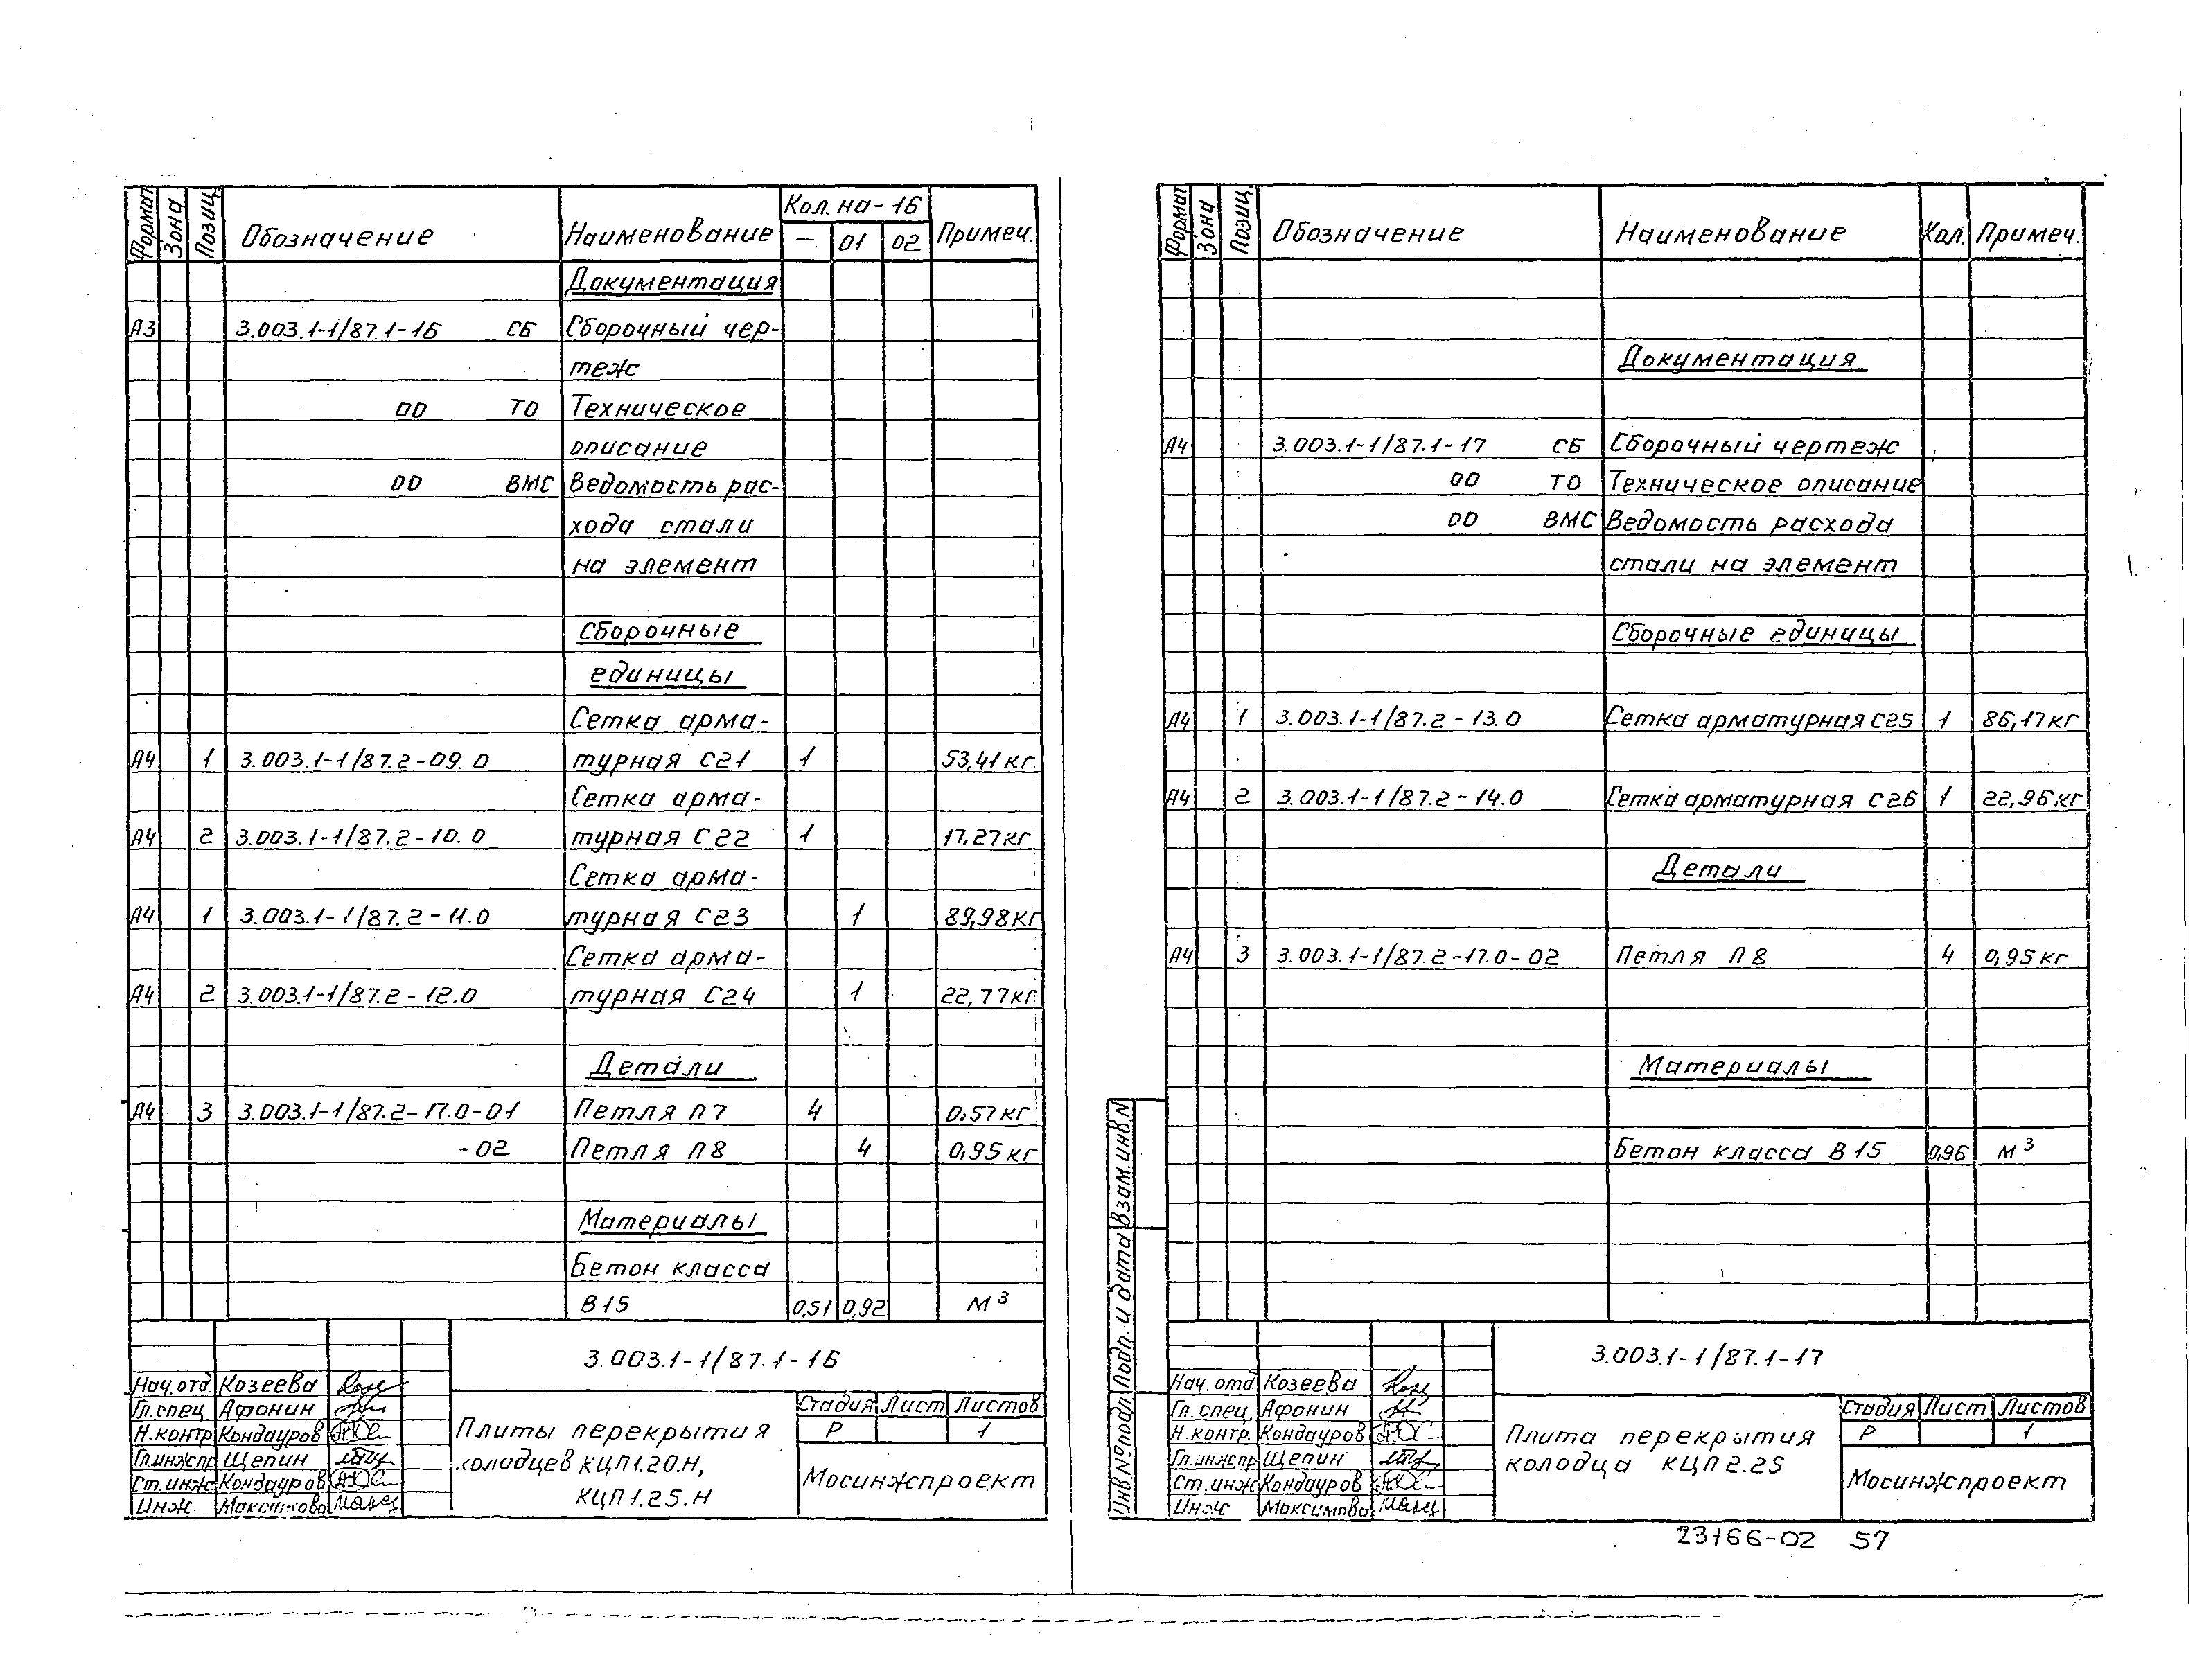 Формат Зона Позиц. Обозначение Наименование Кол. на - 16 Примеч.
— 01 02
Документация
А3 3.003.1-1/87.1-16 СБ Сборочный чер-
теж
00 ТО Техническое
описание
00 ВМС Ведомость рас-
хода стали
на элемент
Сборочные
единицы
Сетка арма-
А4 1 3.003.1-1/87.2-09.0 турная С21 1 53,41 кг
Сетка арма-
А4 2 3.003.1-1/87.2-10.0 турная С22 1 17,27 кг
Сетка арма-
А4 1 3.003.1-1/87.2-11.0 турная С23 1 89,98 кг
Сетка арма-
А4 2 3.003.1-1/87.2-12.0 турная С24 1 22,77 кг
Детали
А4 3 3.003.1-1/87.2-17.0-01 Петля П7 4 0,57 кг
-02 Петля П8 4 0,95 кг
Материалы
Бетон класса
В15 0,51 0,92 м³
3.003.1-1/87.1-16
Нач.отд. Козеева
Гл.спец Афонин
Н.контр Кондауров
Гл.инжпр Щепин
Ст.инж Кондауров
Инж. Максимова
Плиты перекрытия
колодцев КЦП1.20.Н,
КЦП1.25.Н
Стадия Лист Листов
Р 1
Мосинжпроект
Формат Зона Позиц. Обозначение Наименование Кол. Примеч.
Документация
А4 3.003.1-1/87.1-17 СБ Сборочный чертеж
00 ТО Техническое описание
00 ВМС Ведомость расхода
стали на элемент
Сборочные единицы
А4 1 3.003.1-1/87.2-13.0 Сетка арматурная С25 1 86,17 кг
А4 2 3.003.1-1/87.2-14.0 Сетка арматурная С26 1 22,96 кг
Детали
А4 3 3.003.1-1/87.2-17.0-02 Петля П8 4 0,95 кг
Материалы
Бетон класса В15 0,96 м³
Инв.№подл. Подп. и дата Взам.инв.N
3.003.1-1/87.1-17
Нач. отд Козеева
Гл. спец. Афонин
Н.контр. Кондауров
Гл.инжпр Щепин
Ст.инж Кондауров
Инж Максимова
Плита перекрытия
колодца КЦП2.25
Стадия Лист Листов
Р 1
Мосинжпроект
23166-02 57